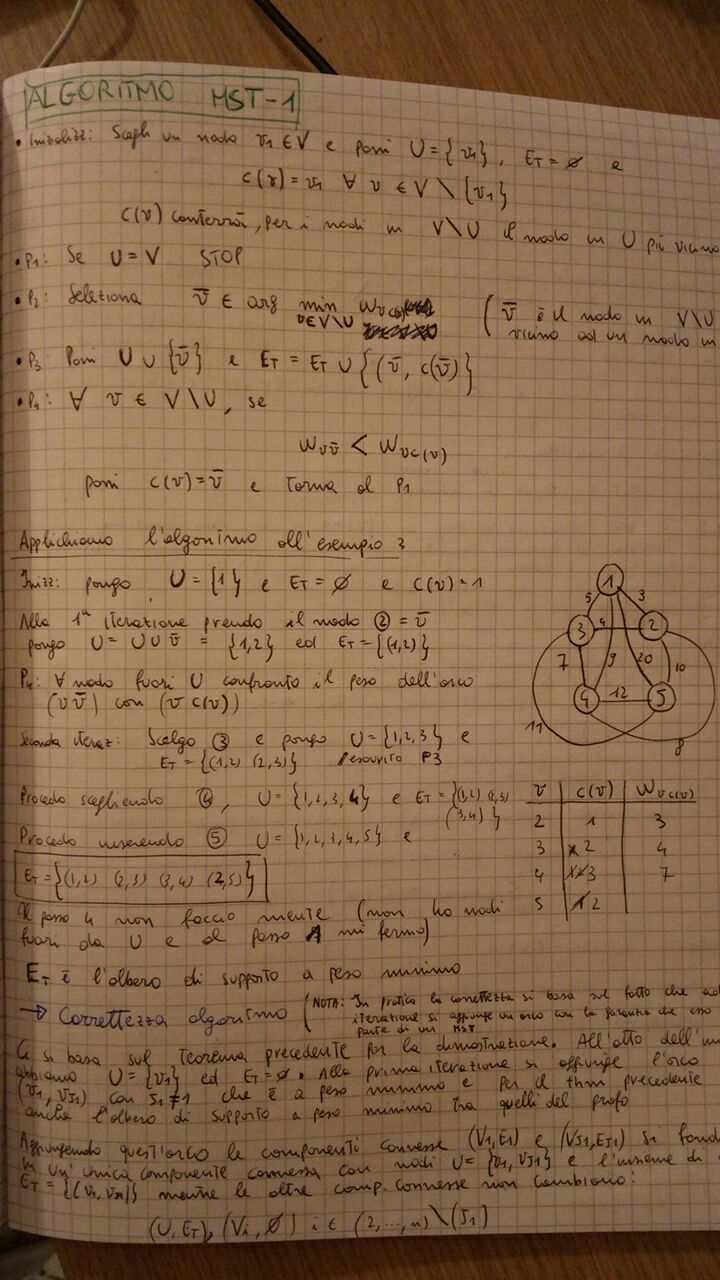 ALGORITMO MST-1
• Inizializz: Scegli un nodo v1 ∈ V e poni U = {v1}, ET = ∅ e
c(v) = v1 ∀ v ∈ V \ {v1}
c(v) conterrà, per i nodi in V\U il nodo in U più vicino
• P1: Se U = V STOP
• P2: Seleziona v̄ ∈ arg min v∈V\U Wvc(v) ( v̄ è il nodo in V\U
vicino ad un nodo in
• P3 Poni U ∪ {v̄} e ET = ET ∪ {(v̄, c(v̄)}
• P4: ∀ v ∈ V\U, se
Wvv̄ < Wvc(v)
poni c(v) = v̄ e torna al P1
Applichiamo l'algoritmo all'esempio 3
Inizz: pongo U = {1} e ET = ∅ e c(v) = 1
Alla 1ª iterazione prendo il nodo 2 = v̄
pongo U = U ∪ v̄ = {1,2} ed ET = {(1,2)}
P4: ∀ nodo fuori U confronto il peso dell'arco
(v v̄) con (v c(v))
Seconda iteraz: Scelgo 3 e pongo U = {1,2,3} e
ET = {(1,2) (2,3)} P3
Procedo scegliendo 4, U = {1,2,3,4} e ET = {(1,2) (2,3)
(3,4)}
Procedo inserendo 5 U = {1,2,3,4,5} e
ET = {(1,2) (2,3) (3,4) (2,5)}
Il passo 4 non faccio niente (non ho nodi
fuori da U e al passo 1 mi fermo)
1
5 3
3 4 2
7 9 20 10
4 12 5
11 8
v c(v) Wvc(v)
2 1 3
3 2 4
4 3 7
5 1 2
ET è l'albero di supporto a peso minimo
→ Correttezza algoritmo (NOTA: In pratica la correttezza si basa sul fatto che ad
iterazione si aggiunge un arco con la garanzia che esso
parte di un MST
Ci si basa sul teorema precedente per la dimostrazione. All'atto dell'in
abbiamo U = {v1} ed ET = ∅. Alla prima iterazione si aggiunge l'arco
(v1, vJ1) con J1 ≠ 1 che è a peso minimo e per il thm precedente
anche l'albero di supporto a peso minimo tra quelli del grafo
Aggiungendo quest'arco le componenti connesse (V1,E1) e (VJ1,EJ1) si fond
in un'unica componente connessa con nodi U = {v1, vJ1} e l'insieme di
ET = {(v1, vJ1)} mentre le altre comp. connesse non cambiano:
(U, ET), (Vi, ∅) i ∈ (2,...,n) \ {J1}